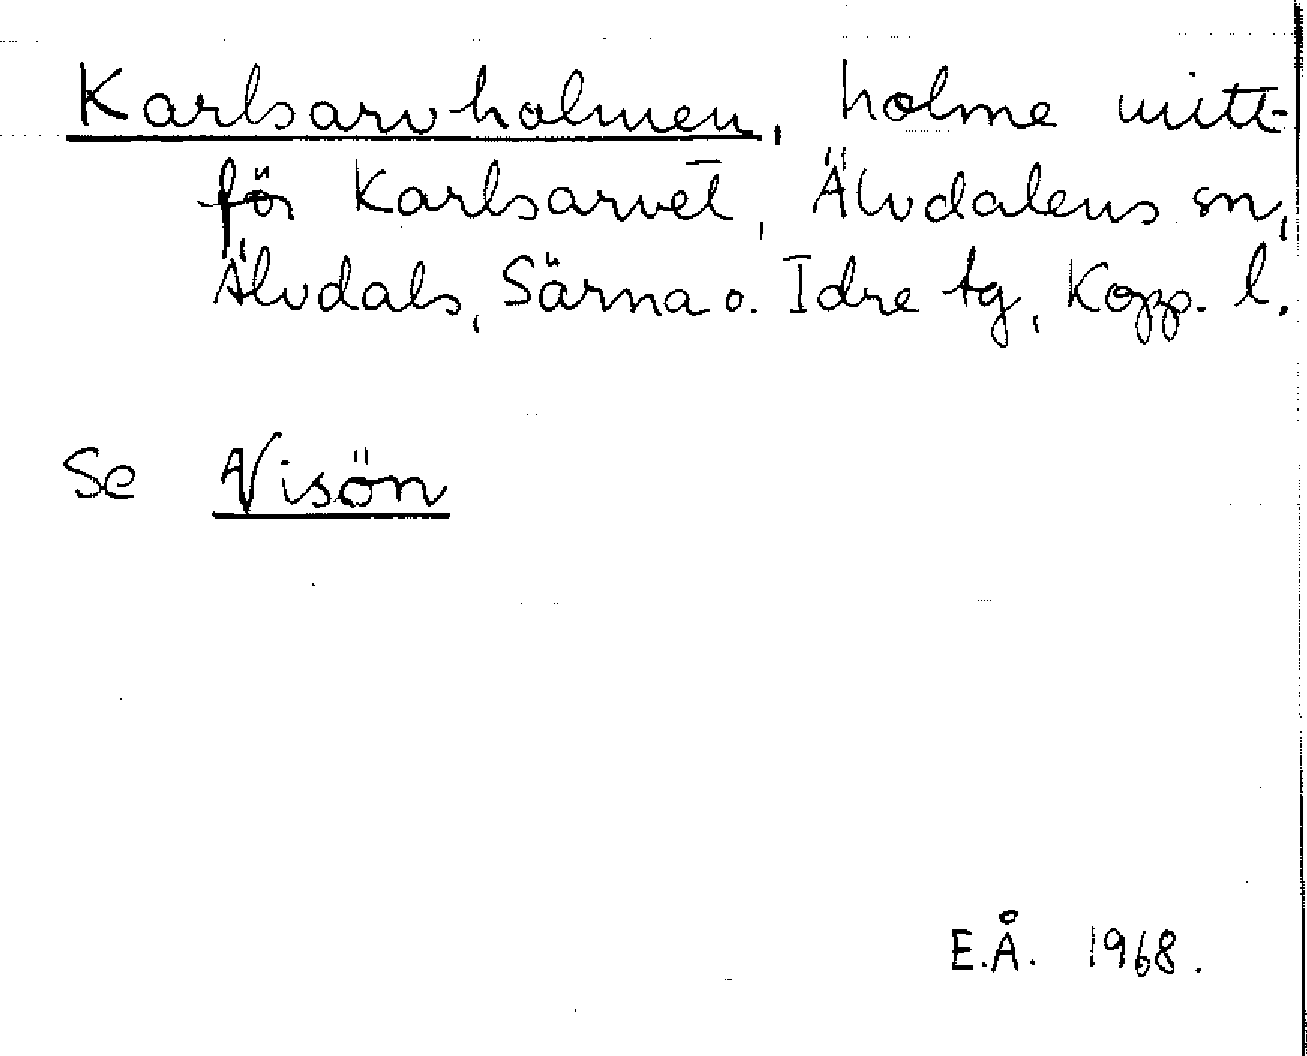 Karlsarvholmen, holme mitt-
för Karlsarvet, Älvdalens sn,
Älvdals, Särna o. Idre tg, Kopp. l.
Se Visön
E.Å. 1968.